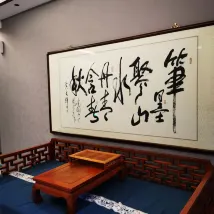 筆墨
聚山
水
丹青
含春
秋